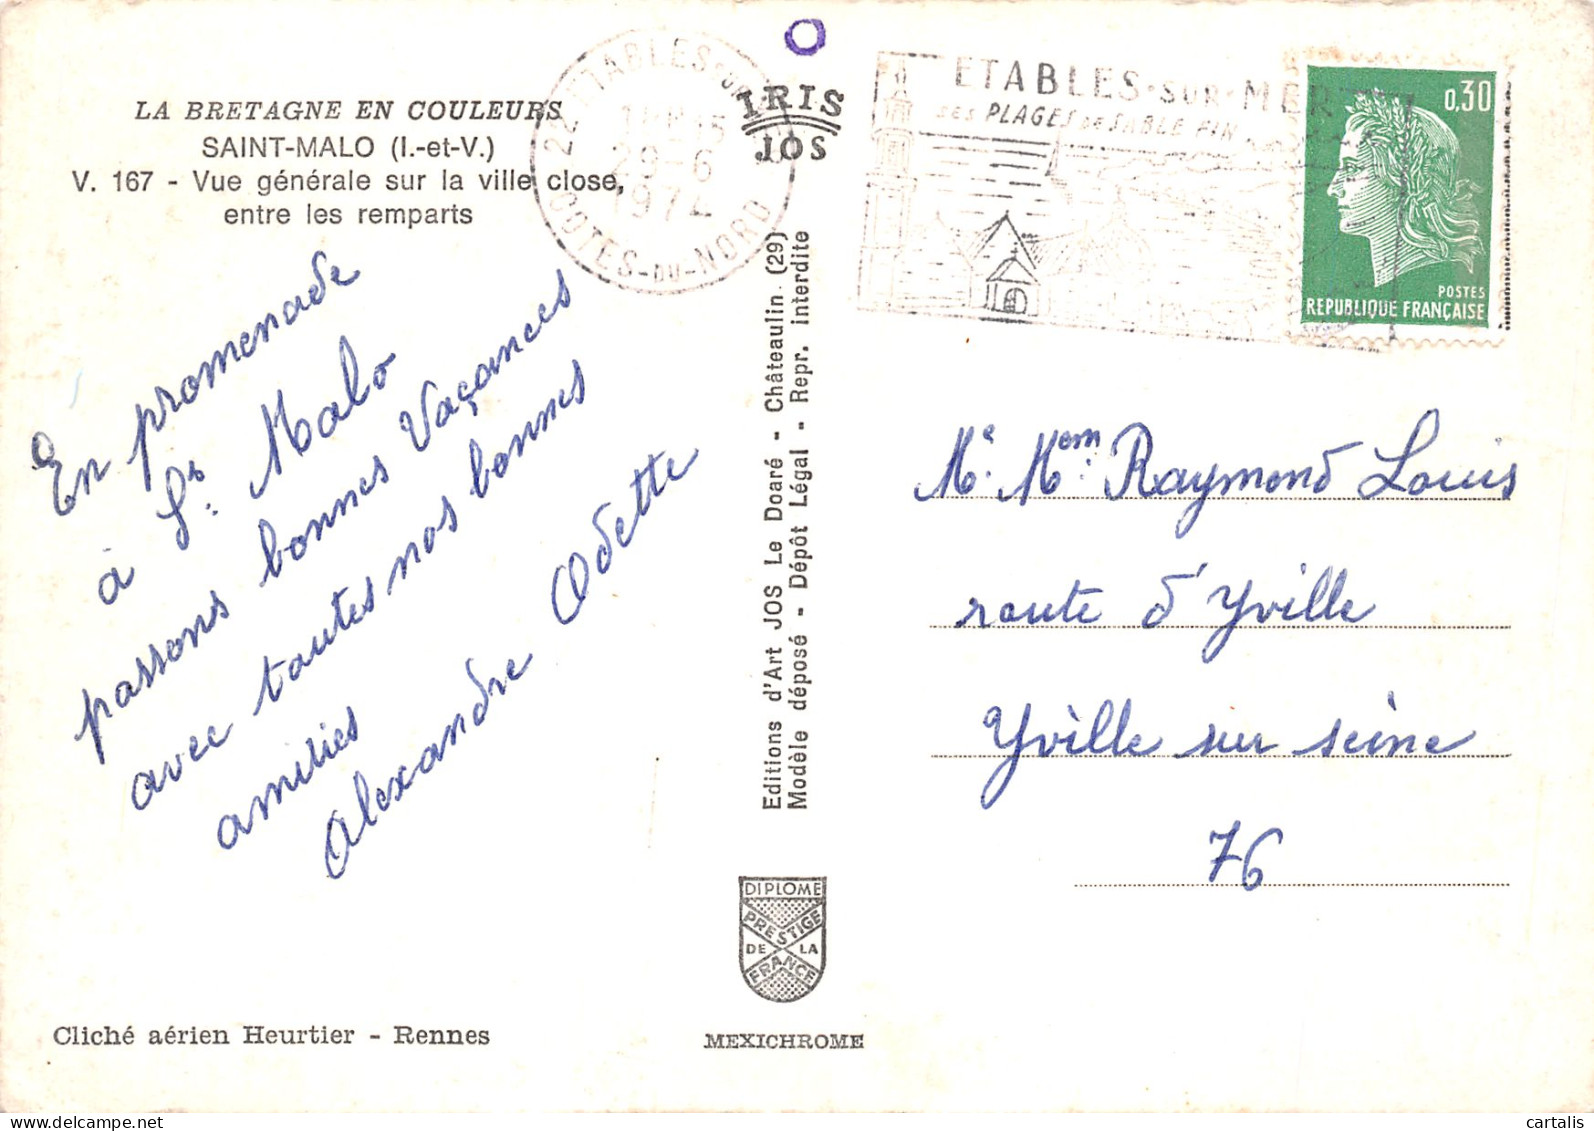 LA BRETAGNE EN COULEURS
SAINT-MALO (I.-et-V.)
V. 167 - Vue générale sur la ville close,
entre les remparts
22 ETABLES-SUR-MER
29-6
1974
COTES-DU-NORD
IRIS
JOS
ETABLES-SUR-MER
SES PLAGES DE SABLE FIN
0,30
POSTES
REPUBLIQUE FRANÇAISE
En promenade
à St. Malo
passons bonnes Vaçances
avec toutes nos bonnes
amitiés
Alexandre Odette
Editions d'Art JOS Le Doaré - Châteaulin (29)
Modèle déposé - Dépôt Légal - Repr. interdite
Mr. Mem: Raymond Louis
route d'Yville
Yville sur seine
76
DIPLOME
PRESTIGE
DE LA
FRANCE
Cliché aérien Heurtier - Rennes
MEXICHROME
cartalis